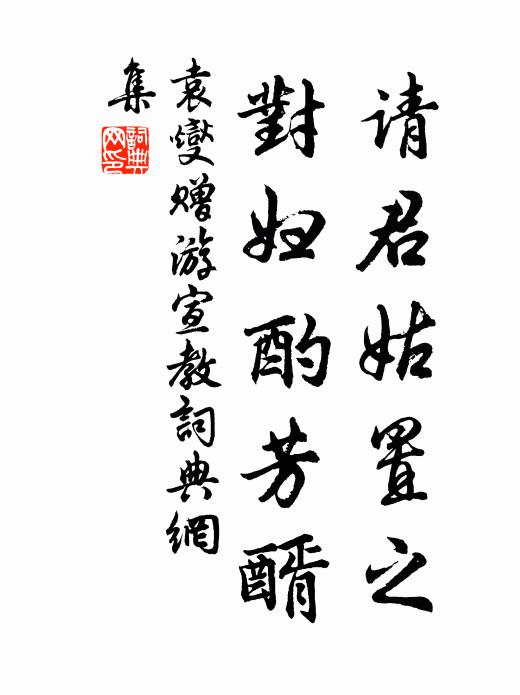 请君姑置之
對妇酌芳醑
袁燮赠游宣教詞典網
集
詞典網印